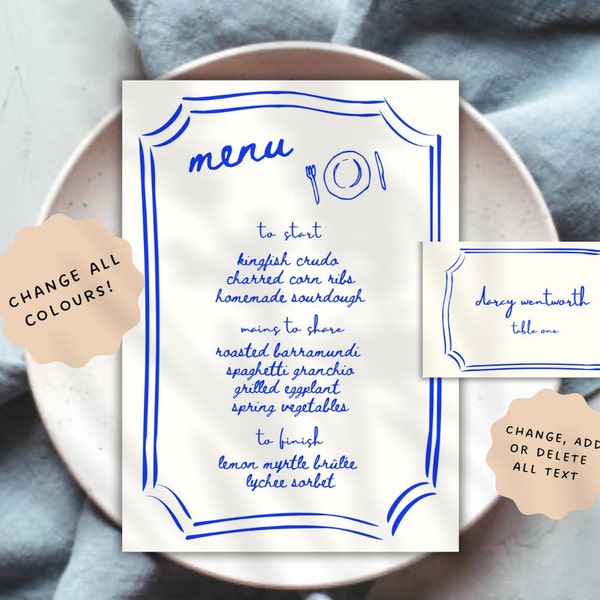 menu
to start
kingfish crudo
charred corn ribs
homemade sourdough
mains to share
roasted barramundi
spaghetti granchio
grilled eggplant
spring vegetables
to finish
lemon myrtle brûlée
lychee sorbet
CHANGE ALL
COLOURS!
darcy wentworth
table one
CHANGE, ADD
OR DELETE
ALL TEXT